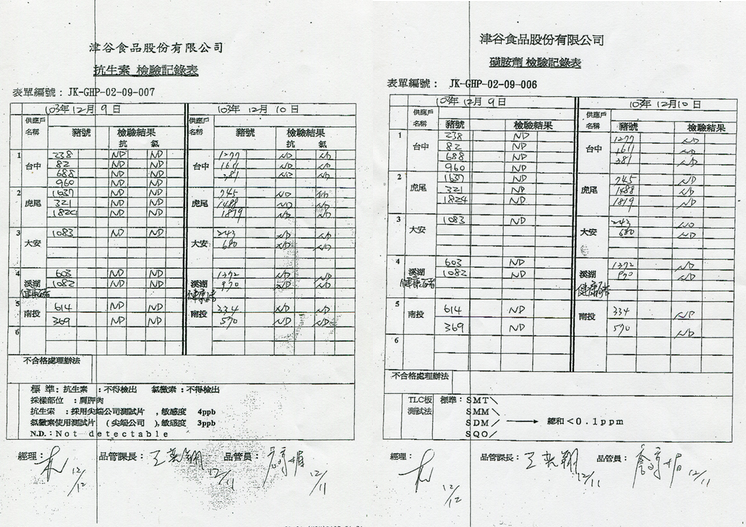 津谷食品股份有限公司
抗生素 檢驗記錄表
表單編號：JK-GHP-02-09-007
103年12月9日 103年12月10日
供應戶名稱 豬號 檢驗結果 供應戶名稱 豬號 檢驗結果
抗 氯 抗 氯
1 台中 238 ND ND 台中 1277 ND ND
82 ND ND 1611 ND ND
688 ND ND 281 ND ND
960 ND ND
2 虎尾 1637 ND ND 虎尾 745 ND ND
321 ND ND 1488 ND ND
1820 ND ND 1819 ND ND
3 大安 1083 ND ND 大安 243 ND ND
680 ND ND
4 溪湖 603 ND ND 溪湖 1372 ND ND
1082 ND ND 970 ND ND
5 南投 614 ND ND 南投 334 ND ND
369 ND ND 570 ND ND
6
不合格處理辦法
標 準：抗生素 ：不得檢出 氯黴素：不得檢出
採樣部位 ：肩胛肉
抗生素 ：採用尖端公司測試片，敏感度 4ppb
氯黴素使用測試片 （尖端公司 ），敏感度 3ppb
N.D.：Not detectable
經理： 12/12 品管課長： 12/11 品管員： 12/11
津谷食品股份有限公司
磺胺劑 檢驗記錄表
表單編號： JK-GHP-02-09-006
103年12月9日 103年12月10日
供應戶名稱 豬號 檢驗結果 供應戶名稱 豬號 檢驗結果
1 台中 238 ND 台中 1277 ND
82 ND 1611 ND
688 ND 281 ND
960 ND
2 虎尾 1637 ND 虎尾 745 ND
321 ND 1488 ND
1824 ND 1819 ND
3 大安 1083 ND 大安 243 ND
680 ND
4 溪湖 603 ND 溪湖 1372 ND
1082 ND 970 ND
5 南投 614 ND 南投 334 ND
369 ND 570 ND
6
不合格處理辦法
TLC板測試法 標準：SMT\
SMM\
SDM/ → 總和<0.1ppm
SQO/
經理： 12/12 品管課長： 12/11 品管員： 12/11